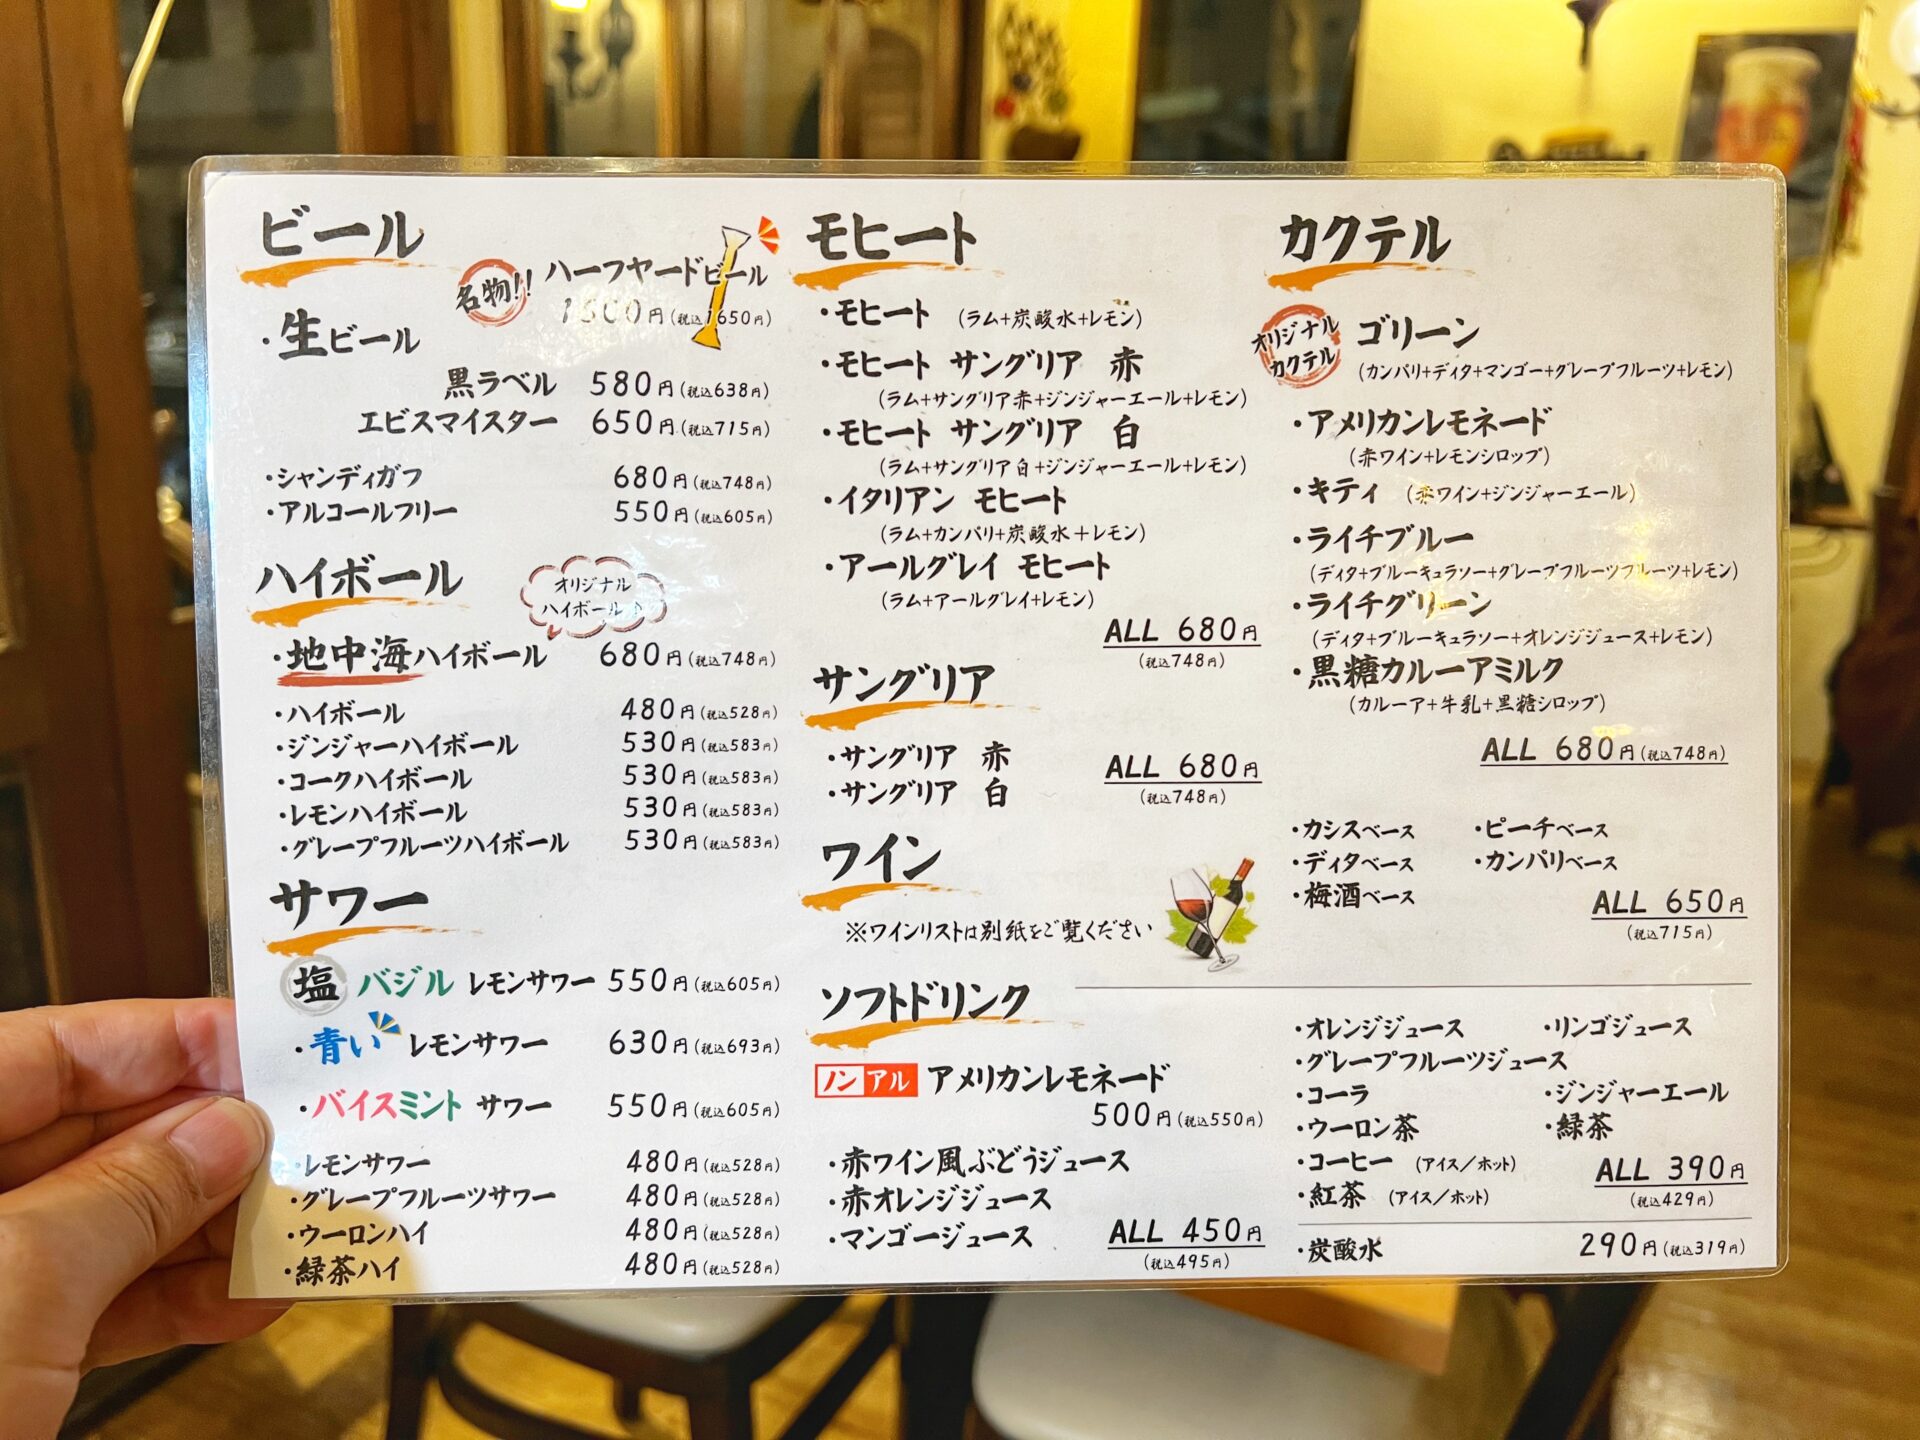 ビール
名物!! ハーフヤードビール
1500円(税込1650円)
・生ビール
黒ラベル 580円(税込638円)
エビスマイスター 650円(税込715円)
・シャンディガフ 680円(税込748円)
・アルコールフリー 550円(税込605円)
ハイボール
オリジナル
ハイボール♪
・地中海ハイボール 680円(税込748円)
・ハイボール 480円(税込528円)
・ジンジャーハイボール 530円(税込583円)
・コークハイボール 530円(税込583円)
・レモンハイボール 530円(税込583円)
・グレープフルーツハイボール 530円(税込583円)
サワー
塩 バジル レモンサワー 550円(税込605円)
・青い レモンサワー 630円(税込693円)
・バイスミント サワー 550円(税込605円)
・レモンサワー 480円(税込528円)
・グレープフルーツサワー 480円(税込528円)
・ウーロンハイ 480円(税込528円)
・緑茶ハイ 480円(税込528円)
モヒート
・モヒート (ラム+炭酸水+レモン)
・モヒート サングリア 赤
(ラム+サングリア赤+ジンジャーエール+レモン)
・モヒート サングリア 白
(ラム+サングリア白+ジンジャーエール+レモン)
・イタリアン モヒート
(ラム+カンパリ+炭酸水+レモン)
・アールグレイ モヒート
(ラム+アールグレイ+レモン)
ALL 680円
(税込748円)
サングリア
・サングリア 赤
・サングリア 白
ALL 680円
(税込748円)
ワイン
※ワインリストは別紙をご覧ください
カクテル
オリジナル
カクテル
ゴリーン
(カンパリ+ディタ+マンゴー+グレープフルーツ+レモン)
・アメリカンレモネード
(赤ワイン+レモンシロップ)
・キティ (赤ワイン+ジンジャーエール)
・ライチブルー
(ディタ+ブルーキュラソー+グレープフルーツフルーツ+レモン)
・ライチグリーン
(ディタ+ブルーキュラソー+オレンジジュース+レモン)
・黒糖カルーアミルク
(カルーア+牛乳+黒糖シロップ)
ALL 680円(税込748円)
・カシスベース ・ピーチベース
・ディタベース ・カンパリベース
・梅酒ベース
ALL 650円
(税込715円)
ソフトドリンク
ノンアル アメリカンレモネード
500円(税込550円)
・赤ワイン風ぶどうジュース
・赤オレンジジュース
・マンゴージュース
ALL 450円
(税込495円)
・オレンジジュース ・リンゴジュース
・グレープフルーツジュース
・コーラ ・ジンジャーエール
・ウーロン茶 ・緑茶
・コーヒー (アイス/ホット)
・紅茶 (アイス/ホット)
ALL 390円
(税込429円)
・炭酸水 290円(税込319円)